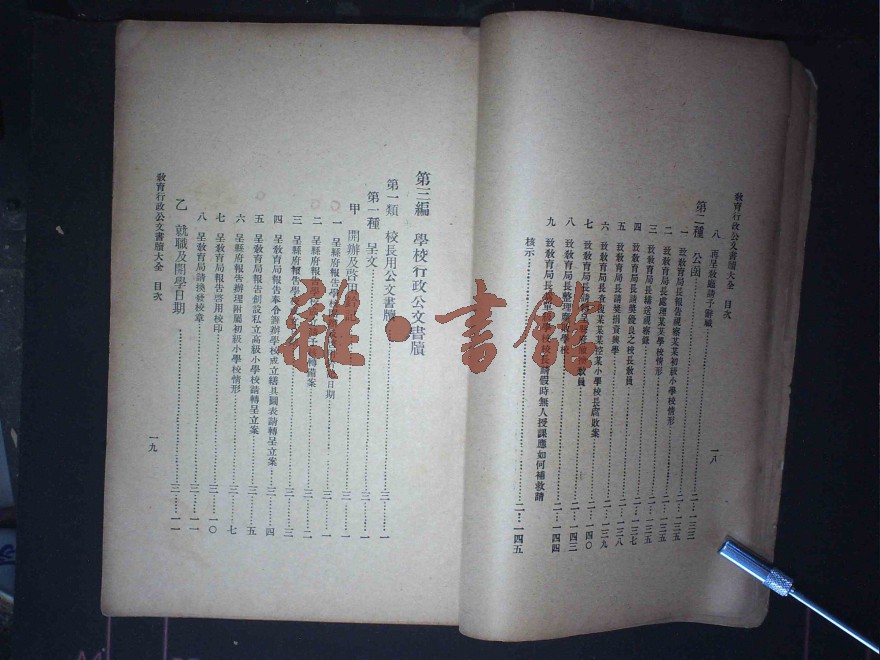 教育行政公文書牘大全 目次 一八
八 再呈敎廳請予辭職
第二種 公函 二…一三三
一 致敎育局長報告視察某某初級小學校情形 二…一三三
二 致敎育局長處理某某學校情形 二…一三五
三 致敎育局長構送視察錄 二…一三五
四 致敎育局長請獎優良之校長敎員 二…一三七
五 致敎育局長請獎捐資興學 二…一三八
六 致敎育局長查復某某某控某小學校長腐敗案 二…一三九
七 致敎育局長 敎員 二…一四〇
八 致敎育局長整理 學校 二…一四三
九 致敎育局長 學校校長請假時無人授課應如何補救請 二…一四四
核示 二…一四五
第三編 學校行政公文書牘
第一類 校長用公文書牘 三…一
第一種 呈文 三…一
甲 開辦及啓用 三…一
一 呈縣府報告學校 日期 三…一
二 呈縣府報告學 轉備案 三…二
三 呈縣府報告學 三…三
四 呈敎育局報告奉令籌辦學校成立繕具圖表請轉呈立案 三…四
五 呈敎育局報告創設私立高級小學校請轉呈立案 三…五
六 呈縣府報告辦理附屬初級小學校情形 三…七
七 呈敎育局報告啓用校印 三…一〇
八 呈敎育局請換發校章 三…一一
乙 就職及開學日期 三…一一
敎育行政公文書牘大全 目次 一九
雜·書館